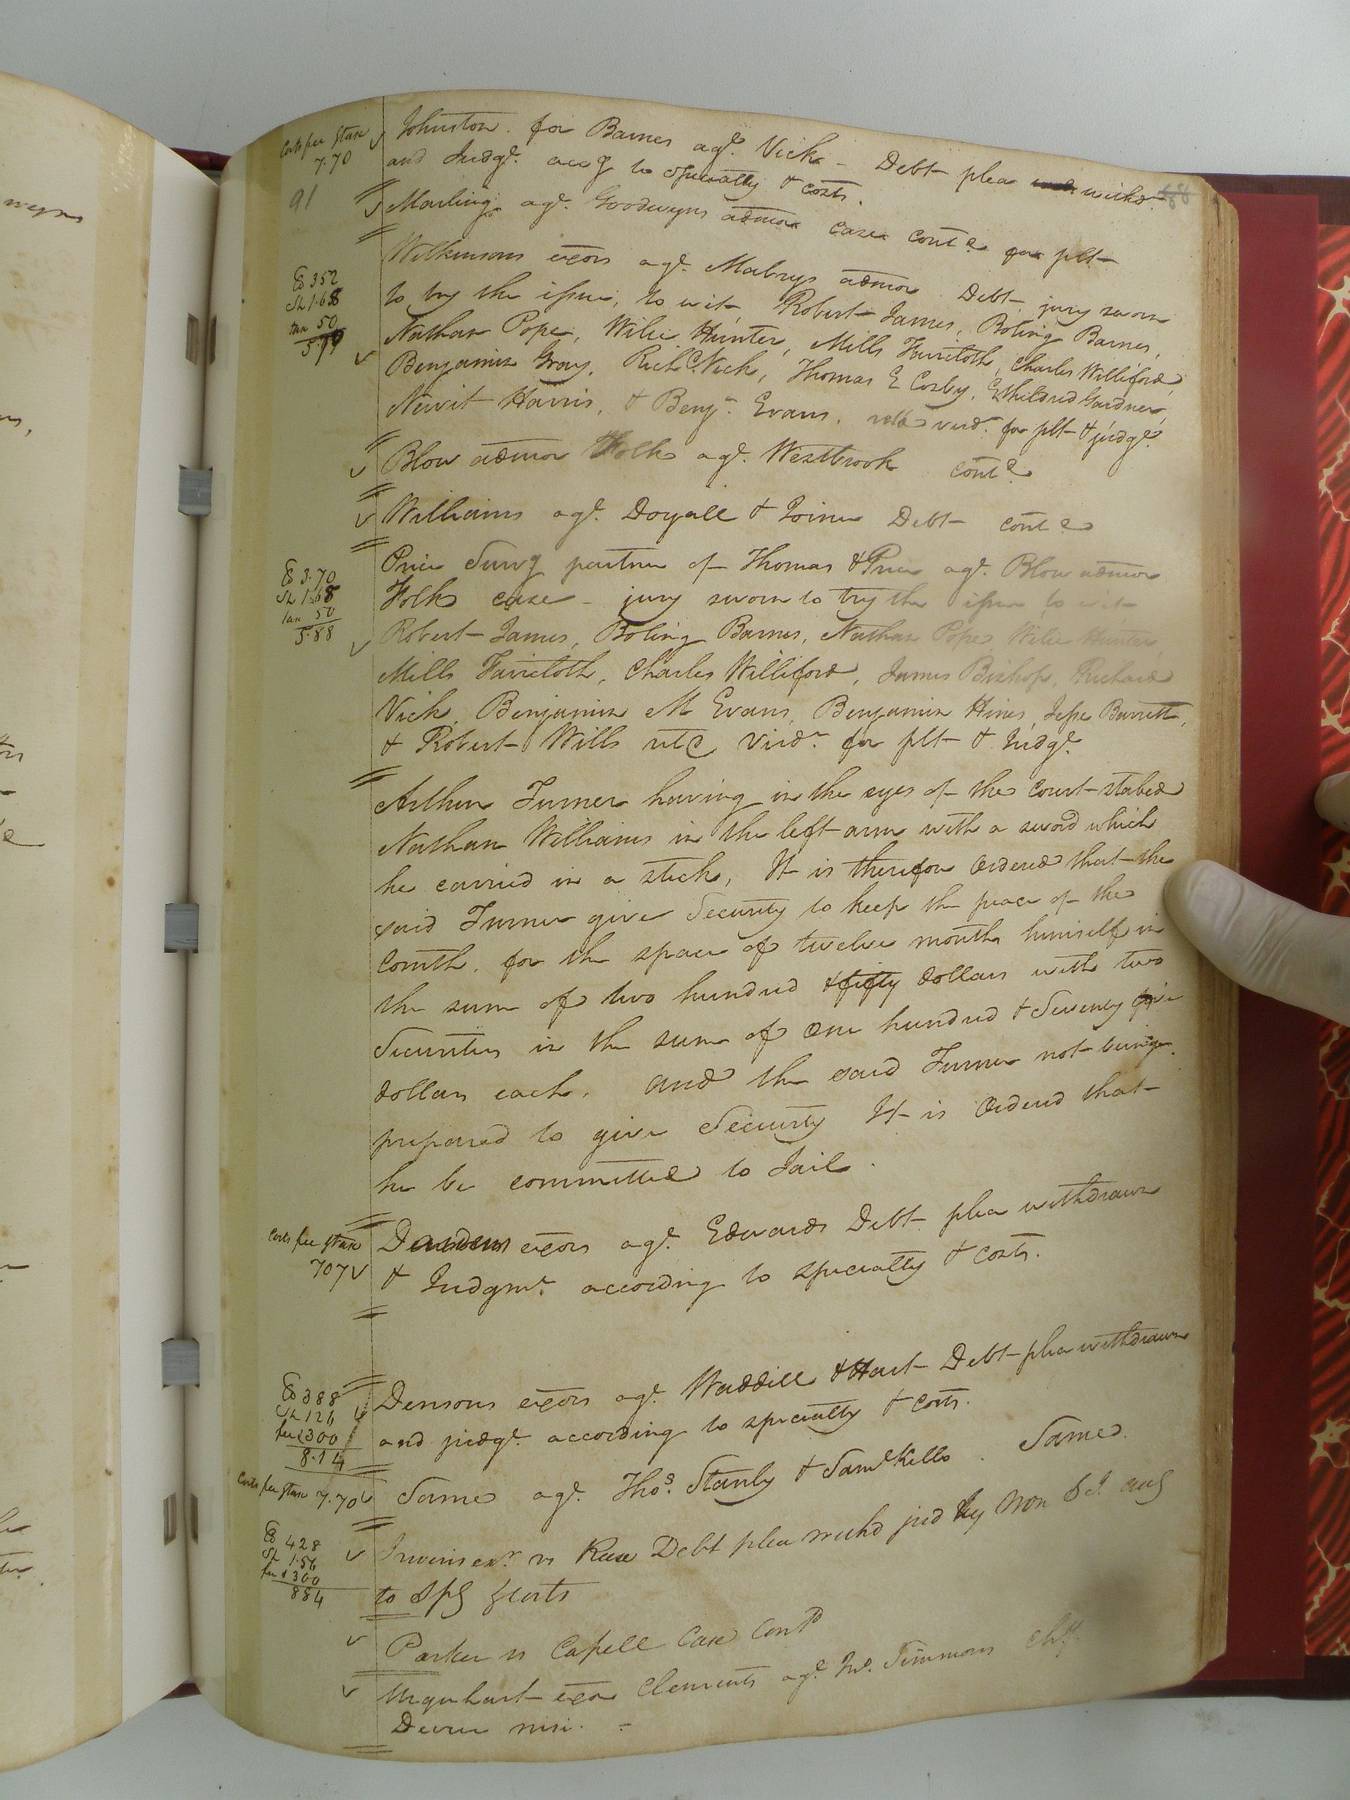 Costs fee & tax
7.70
Johnston for Barnes agt. Vick - Debt plea withd.
and Judgt. accg to specialty & costs.
91
Marling agt. Goodwyns admor case contd for plt
Wilkinsons exors agt. Mabrys admor Debt jury sworn
Co 352
to try the issue, to wit, Robert James, Boling Barnes,
Sh 1.68
tax 50
Nathan Pope, Wilie Hunter, Mills Faircloth, Charles Williford,
Benjamin Gray, Richd. Vick, Thomas E Cosby, Ethildred Gardner,
Newit Harris, & Benjn. Evans, verd. for plt & judgt
Blow admor Holts agt. Westbrook contd
Williams agt. Doyall & Joiner Debt contd
Price Survg partner of Thomas & Price agt. Blow admor
Co 3.70
Sh 1.68
tax 50
5.88
Holts case - jury sworn to try the issue to wit
Robert James, Boling Barnes, Nathan Pope, Wilie Hunter,
Mills Faircloth, Charles Williford, James Bishop, Richard
Vick, Benjamin M Evans, Benjamin Hines, Jesse Barrett,
& Robert Wills retd Verdt. for plt & Judgt.
Arthur Turner having in the eyes of the Court stabed
Nathan Williams in the left arm with a sword which
he carried in a stick, It is therefore Ordered that the
said Turner give Security to keep the peace of the
Comth. for the space of twelve months himself in
the sum of two hundred & fifty dollars with two
Securities in the sum of One hundred & Seventy five
dollars each. And the said Turner not being
prepared to give Security It is Ordered that
he be committed to Jail.
Costs fee & tax
707
Dardens exors agt. Edwards Debt plea withdrawn
& Judgmt. according to specialty & costs.
Co 388
Sh 126
fee 300
8.14
Densons exors agt. Waddill & Hart Debt plea withdrawn
and judgt. according to specialty & costs.
Costs fee & tax 7.70
Same agt. Thos. Stanly & Saml Kello . Same.
Co 428
Sh 1.56
fee 300
884
Irwins exr. vs Rese Debt plea withd jud by Non S I accg
to Spl & costs
Parker vs Capell Case Contd
Urquhart exor Clements agt. Jno. Simmons Chy.
Decree nisi. -